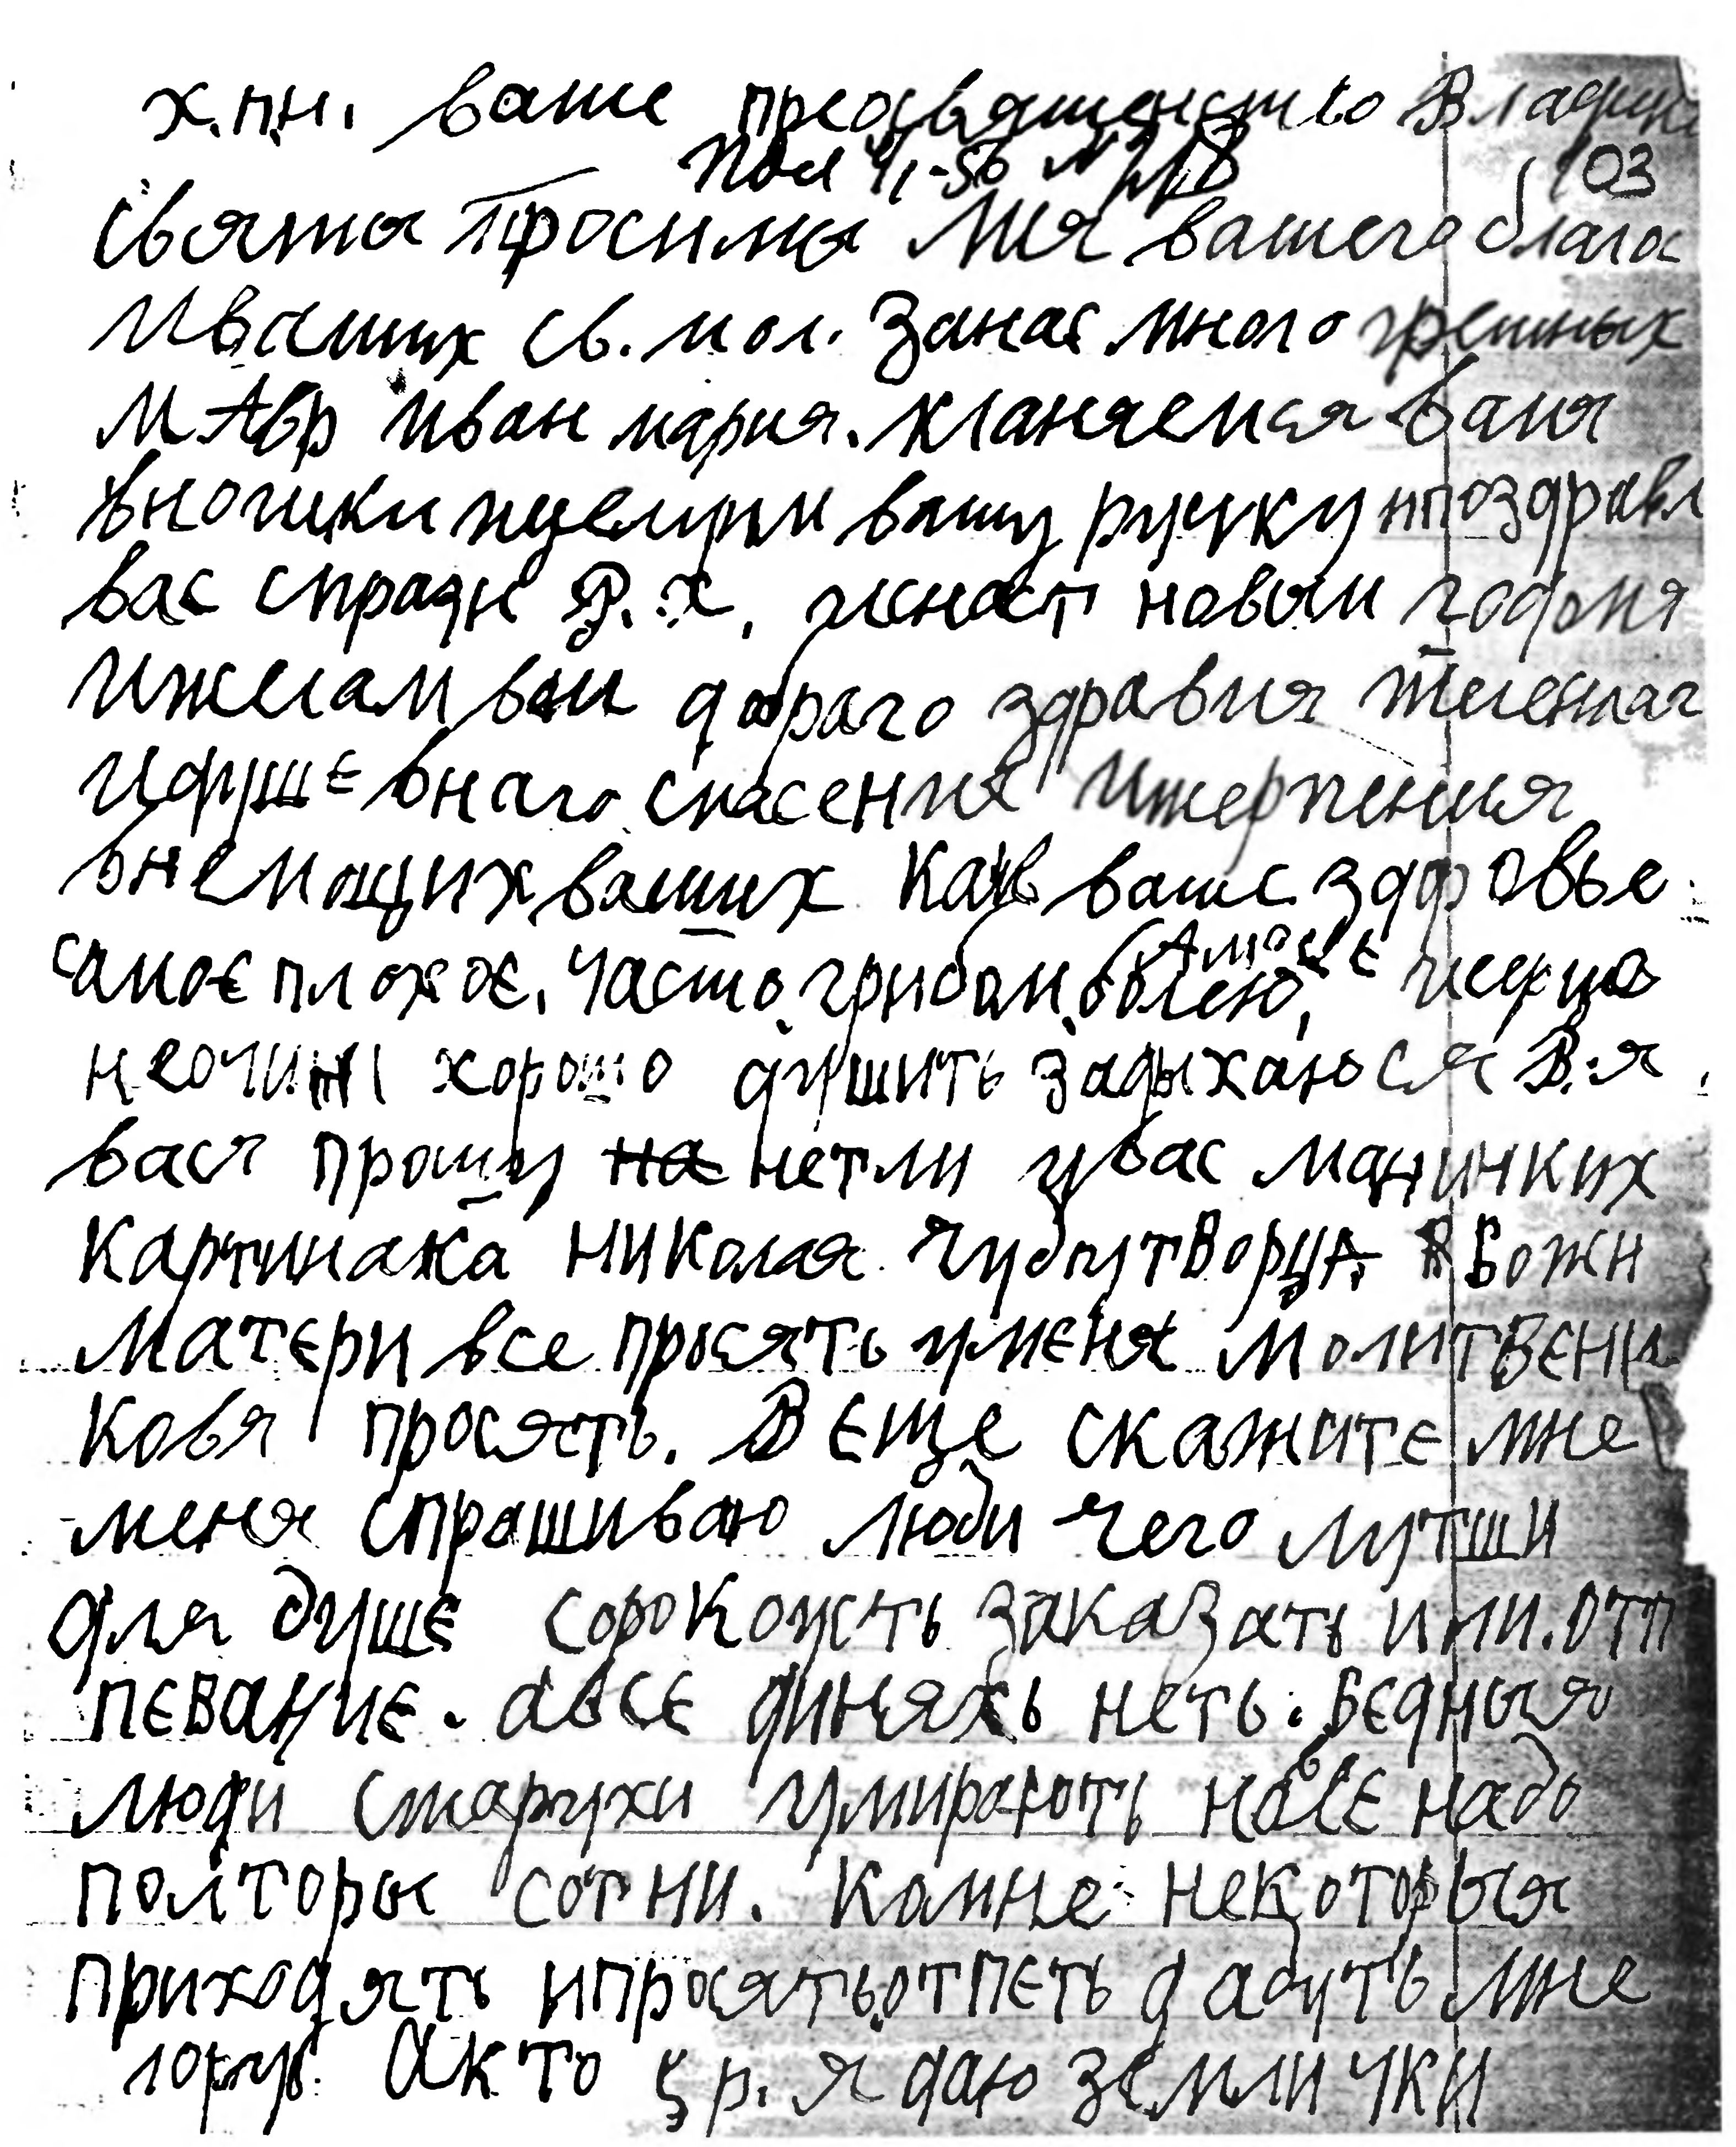 х.пн. ваше преосвященсто Влады
Пол 4/1-56 №
103
святы просимы мя вашего благос
иваших св. мол. занас много грешных
М Авр иван мария. кланяемся вамя
вношки ицелуем вашу ручку ипоздравл
вас спразн Р.Х. иснаст новым годомя
ижелам вам доброго здравия телеснаг
идушевнаго спасения итерпения
внемощих ваших Как ваше здоровье
Амоъе
самоє плохоє. часто грибом болею, исердца
неочинь хорошо душить задыхаюся В:я
вася прошу на нетли увас маниньких
картинака николая чудоутворца ЯБожи
матєри все просять уменя молитвєни
ковя просять. В єще скажитє мне
меня спрашиваю люди чего лутши
для душє сорокоусть заказать или. отп
пєваниє. авсє диняхь неть: бєдныя
люди старухи умирають навсє надо
полторы сотни. камне некоторыя
приходять ипросять.отпєть дадуть мне
10руб. Акто 5р. я даю зємлички